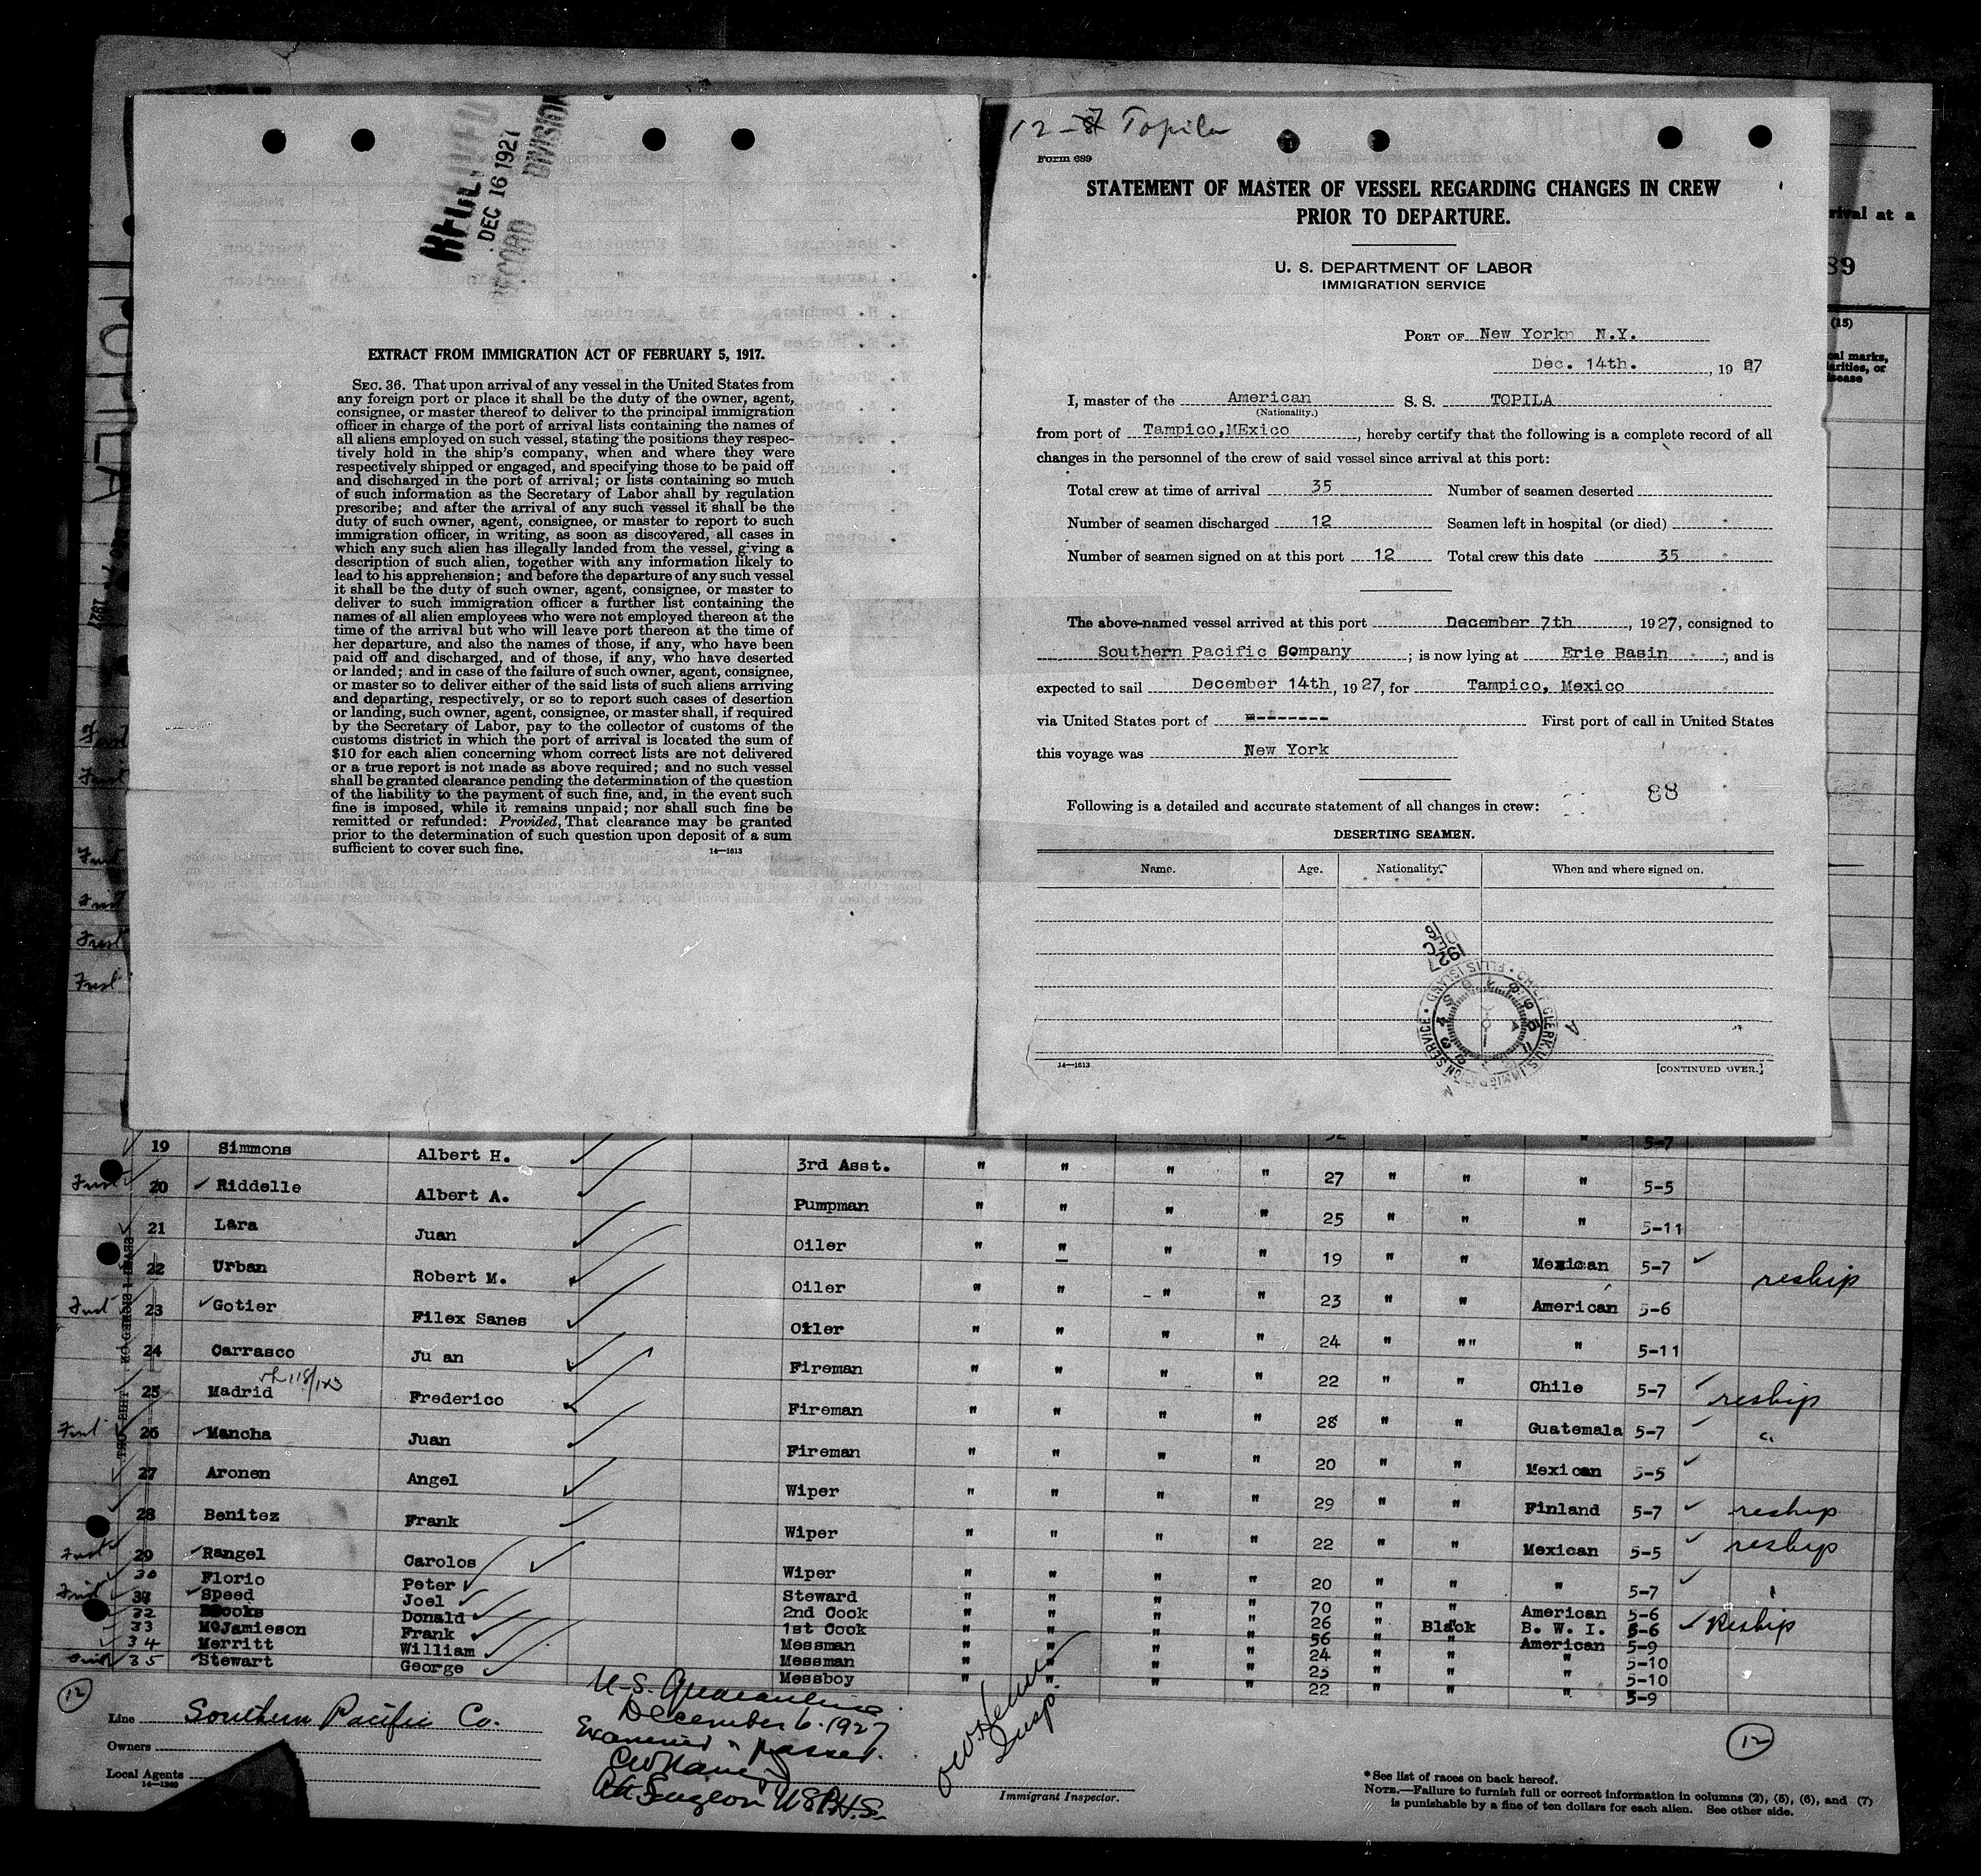 DEC 16 1927
RECORD DIVISION
EXTRACT FROM IMMIGRATION ACT OF FEBRUARY 5, 1917.
SEC. 36. That upon arrival of any vessel in the United States from
any foreign port or place it shall be the duty of the owner, agent,
consignee, or master thereof to deliver to the principal immigration
officer in charge of the port of arrival lists containing the names of
all aliens employed on such vessel, stating the positions they respec-
tively hold in the ship's company, when and where they were
respectively shipped or engaged, and specifying those to be paid off
and discharged in the port of arrival; or lists containing so much
of such information as the Secretary of Labor shall by regulation
prescribe; and after the arrival of any such vessel it shall be the
duty of such owner, agent, consignee, or master to report to such
immigration officer, in writing, as soon as discovered, all cases in
which any such alien has illegally landed from the vessel, giving a
description of such alien, together with any information likely to
lead to his apprehension; and before the departure of any such vessel
it shall be the duty of such owner, agent, consignee, or master to
deliver to such immigration officer a further list containing the
names of all alien employees who were not employed thereon at the
time of the arrival but who will leave port thereon at the time of
her departure, and also the names of those, if any, who have been
paid off and discharged, and of those, if any, who have deserted
or landed; and in case of the failure of such owner, agent, consignee,
or master so to deliver either of the said lists of such aliens arriving
and departing, respectively, or so to report such cases of desertion
or landing, such owner, agent, consignee, or master shall, if required
by the Secretary of Labor, pay to the collector of customs of the
customs district in which the port of arrival is located the sum of
$10 for each alien concerning whom correct lists are not delivered
or a true report is not made as above required; and no such vessel
shall be granted clearance pending the determination of the question
of the liability to the payment of such fine, and, in the event such
fine is imposed, while it remains unpaid; nor shall such fine be
remitted or refunded: Provided, That clearance may be granted
prior to the determination of such question upon deposit of a sum
sufficient to cover such fine. 14—1613
12-7 Topila
Form 689
STATEMENT OF MASTER OF VESSEL REGARDING CHANGES IN CREW
PRIOR TO DEPARTURE.
U. S. DEPARTMENT OF LABOR
IMMIGRATION SERVICE
PORT OF New Yorkn N.Y.
Dec. 14th., 1927
I, master of the American S. S. TOPILA
(Nationality.)
from port of Tampico,MExico, hereby certify that the following is a complete record of all
changes in the personnel of the crew of said vessel since arrival at this port:
Total crew at time of arrival 35 Number of seamen deserted
Number of seamen discharged 12 Seamen left in hospital (or died)
Number of seamen signed on at this port 12 Total crew this date 35
The above-named vessel arrived at this port December 7th, 1927, consigned to
Southern Pacific Company; is now lying at Erie Basin, and is
expected to sail December 14th, 1927, for Tampico, Mexico
via United States port of -------- First port of call in United States
this voyage was New York
88
Following is a detailed and accurate statement of all changes in crew:
DESERTING SEAMEN.
Name. Age. Nationality. When and where signed on.
1927 DEC 16
CHIEF CLERK U.S. IMMIGRATION SERVICE • ELLIS ISLAND •
14—1613 [CONTINUED OVER.]
rival at a
89
(15)
19 Simmons Albert H. 3rd Asst. " " " " 27 " " " 5-5
20 Riddelle Albert A. Pumpman " " " " 25 " " " 5-11
21 Lara Juan Oiler " " " " 19 " " Mexican 5-7 reship
22 Urban Robert M. Oiler " " " " 23 " " American 5-6
23 Gotier Filex Sanes Oiler " " " " 24 " "" " 5-11
24 Carrasco Ju an Fireman " " " " 22 " " Chile 5-7 reship
25 Madrid Frederico Fireman " " " " 28 " " Guatemala 5-7 "
26 Mancha Juan Fireman " " " " 20 " " Mexican 5-5
27 Aronen Angel Wiper " " " " 29 " " Finland 5-7 reship
28 Benitez Frank Wiper " " " " 22 " " Mexican 5-5 reship
29 Rangel Carolos Wiper " " " " 20 " " " 5-7
30 Florio Peter Steward " " " " 70 " " American 5-6
31 Speed Joel 2nd Cook " " " " 26 " Black B. W. I. 5-6 Reship
32 Brooks Donald 1st Cook " " " " 56 " American 5-9
33 McJamieson Frank Messman " " " " 24 " " " 5-10
34 Merritt William Messman " " " " 25 " " " 5-10
35 Stewart George Messboy " " " " 22 " " " 5-9
12
Line Southern Pacific Co.
Owners
Local Agents
14—1240
U.S. Quarantine
December 6. 1927
Examined & passed.
Surgeon USPHS.
Insp.
Immigrant Inspector.
12
*See list of races on back hereof.
NOTE.—Failure to furnish full or correct information in columns (2), (5), (6), and (7)
is punishable by a fine of ten dollars for each alien. See other side.